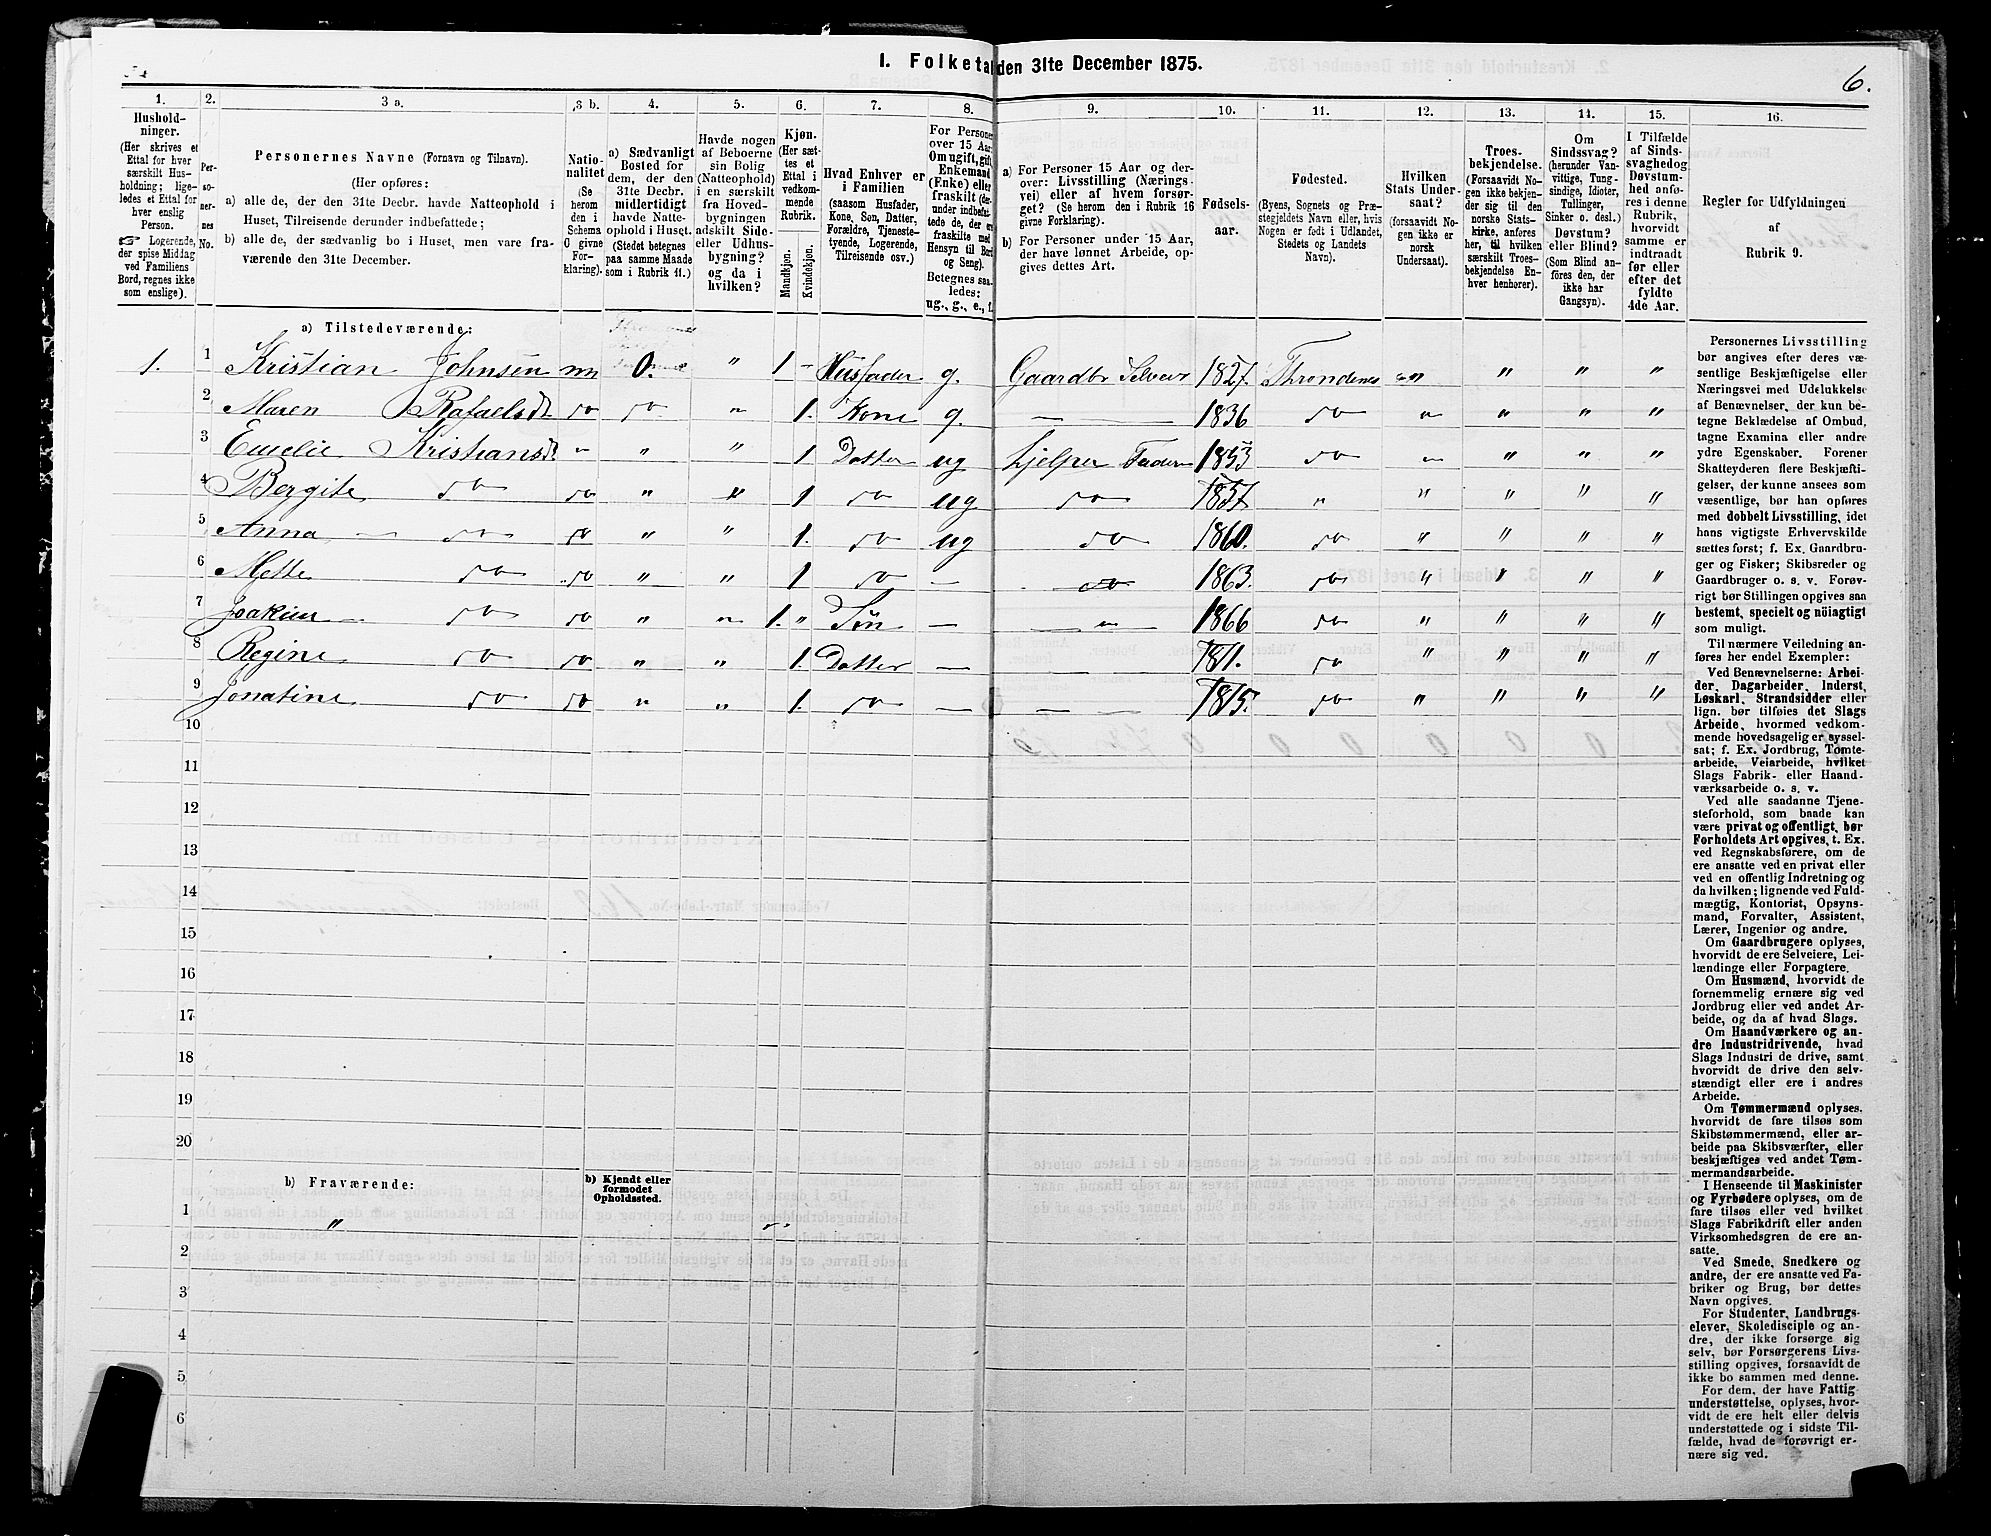 I. Folketal den 31te December 1875.
6.
1.
Husholdninger.
(Her skrives et Ettal for hver særskilt Husholdning; ligeledes et Ettal for hver enslig Person.
☞ Logerende, der spise Middag ved Familiens Bord, regnes ikke som enslige).
2.
Personernes No.
3 a.
Personernes Navne (Fornavn og Tilnavn).
(Her opføres:
a) alle de, der den 31te Decbr. havde Natteophold i Huset, Tilreisende derunder indbefattede;
b) alle de, der sædvanlig bo i Huset, men vare fraværende den 31te December.
3 b.
Nationalitet (Se herom den i Schema O givne Forklaring).
4.
a) Sædvanligt Bosted for dem, der den 31te Decbr. midlertidigt havde Natteophold i Huset. (Stedet betegnes paa samme Maade som i Rubrik 11.)
5.
Havde nogen af Beboerne sin Bolig (Natteophold) i en særskilt fra Hovedbygningen adskilt Side- eller Udhusbygning? og da i hvilken?
6.
Kjøn. (Her sættes et Ettal i vedkommende Rubrik.
Mandkjøn.
Kvindekjøn.
7.
Hvad Enhver er i Familien (saasom Husfader, Kone, Søn, Datter, Forældre, Tjenestetyende, Logerende, Tilreisende osv.)
8.
For Personer over 15 Aar: Om ugift, gift, Enkemand (Enke) eller fraskilt (derunder indbefattede de, der ere fraskilte med Hensyn til Bord og Seng). Betegnes saaledes: ug., g., e., f.
9.
a) For Personer 15 Aar og derover: Livsstilling (Næringsvei) eller af hvem forsørget? (Se herom den i Rubrik 16 givne Forklaring).
b) For Personer under 15 Aar, der have lønnet Arbeide, opgives dettes Art.
10.
Fødselsaar.
11.
Fødested.
(Byens, Sognets og Præstegjeldets Navn eller, hvis Nogen er født i Udlandet, Stedets og Landets Navn).
12.
Hvilken Stats Undersaat?
(forsaavidt Nogen ikke er norsk Undersaat).
13.
Troesbekjendelse.
(Forsaavidt Nogen ikke bekjender sig til den norske Statskirke, anføres her, til hvilken særskilt Troesbekjendelse Enhver henhører).
14.
Om Sindssvag? (herunder Vanvittige, Tungsindige, Idioter, Tullinger, Sinker o. desl.) Døvstum? eller Blind? (Som Blind anføres den, der ikke har Gangsyn).
15.
I Tilfælde af Sindssvaghed og Døvstumhed anføres i denne Rubrik, hvorvidt samme er indtraadt før eller efter det fyldte 4de Aar.
16.
Regler for Udfyldningen af Rubrik 9.
a) Tilstedeværende:
1. 1 Kristian Johnsen nn 0. " 1 - Husfader g. Gaardbr Selveier 1827. Throndenes " " " "
2 Maren Rafaelsd. do do " 1. Kone g. — 1836 do " " " "
3 Emelie Kristiansd. " " " 1 Datter ug hjelper Fader 1853 do " " " "
4 Bergite do do " " 1 do ug do 1857. " " " " "
5 Anna do do " " 1. do ug do 1860. do " " " "
6 Mette do do " " 1 do — do 1863. do " " " "
7 Joakim do do " " 1. " Søn — " 1866 do " " " "
8 Regine do do " " 1. Datter — 1871. do " " " "
9 Jonatine do do " " 1. do — — 1875. do " " " "
10
11
12
13
14
15
16
17
18
19
20
b) Fraværende:
b) Kjendt eller formodet Opholdssted.
1 "
2
3
4
5
6
Personernes Livsstilling
bør angives efter deres væ-
sentlige Beskjæftigelse eller
Næringsvei med Udelukkelse
af Benævnelser, der kun be-
tegne Beklædelse af Ombud,
tagne Examina eller andre
ydre Egenskaber. Forener
Skatteyderen flere Beskjæfti-
gelser, der kunne ansees som
væsentlige, bør han opføres
med dobbelt Livsstilling, idet
hans vigtigste Erhvervskilde
sættes først; f. Ex. Gaardbru-
ger og Fisker; Skibsreder og
Gaardbruger o. s. v. Forøv-
rigt bør Stillingen opgives saa
bestemt, specielt og nöiagtigt
som muligt.
Til nærmere Veiledning an-
føres her endel Exempler:
Ved Benævnelserne: Arbei-
der, Dagarbeider, Inderst,
Løskarl, Strandsidder eller
lign. bør tilføies det Slags
Arbeide, hvormed vedkom-
mende hovedsagelig er syssel-
sat; f. Ex. Jordbrug, Tømte-
arbeide, Veiarbeide, hvilket
Slags Fabrik- eller Haand-
værksarbeide o. s. v.
Ved alle saadanne Tjene-
steforhold, som baade kan
være privat og offentligt, bør
Forholdets Art opgives, t. Ex.
ved Regnskabsførere, om de
ere ansatte ved en privat eller
ved en offentlig Indretning og
da hvilken; lignende ved Fuld-
mægtig, Kontorist, Opsyns-
mand, Forvalter, Assistent,
Lærer, Ingeniør og andre.
Om Gaardbrugere oplyses,
hvorvidt de ere Selveiere, Lei-
lændinge eller Forpagtere.
Om Husmænd, hvorvidt de
fornemmelig ernære sig ved
Jordbrug eller ved andet Ar-
beide, og da af hvad Slags.
Om Haandværkere og an-
dre Industridrivende, hvad
Slags Industri de drive, samt
hvorvidt de drive den selv-
stændigt eller ere i andres
Arbeide.
Om Tømmermænd oplyses.
hvorvidt de fare tilsøs som
Skibstømmermænd, eller ar-
beide paa Skibsværfter, eller
beskjæftiges ved andet Tøm-
mermandsarbeide.
I Henseende til Maskinister
og Fyrbødere oplyses, om de
fare tilsøs eller ved hvilket
Slags Fabrikdrift eller anden
Virksomhedsgren de ere an-
satte.
Ved Smede, Snedkere og
andre, der ere ansatte ved Fa-
briker og Brug, bør dettes
Navn opgives.
For Studenter, Landbrugs-
elever, Skoledisciple og an-
dre, der ikke forsørge sig
selv, bør Forsørgerens Livs-
stilling opgives, forsaavidt de
ikke bo sammen med denne.
For dem, der have Fattig-
understøttelse, oplyses, hvor-
vidt de ere helt eller delvis
understøttede og i sidste Til-
fælde, hvad de forøvrigt er-
nære sig ved.